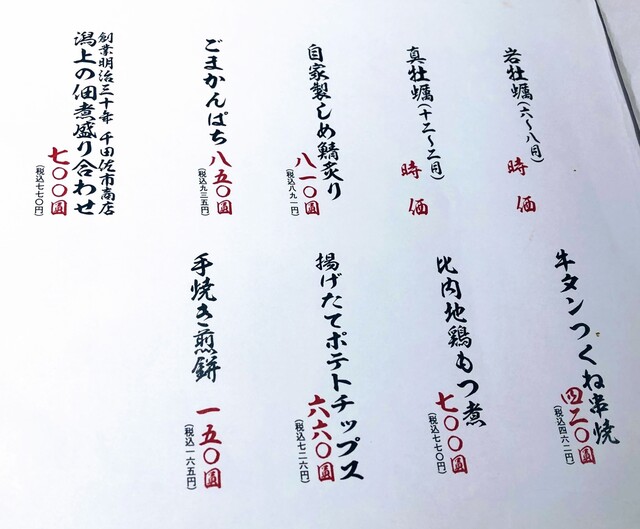 岩牡蠣(六〜八月)
時価
真牡蠣(十二〜二月)
時価
自家製しめ鯖炙り
八一〇圓
(税込八九一円)
ごまかんぱち
八五〇圓
(税込九三五円)
創業明治三十年 千田佐市商店
潟上の佃煮盛り合わせ
七〇〇圓
(税込七七〇円)
牛タンつくね串焼
四二〇圓
(税込四六二円)
比内地鶏もつ煮
七〇〇圓
(税込七七〇円)
揚げたてポテトチップス
六六〇圓
(税込七二六円)
手焼き煎餅
一五〇圓
(税込一六五円)